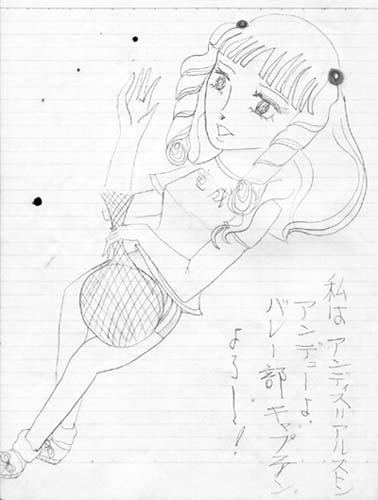 私は アンディス=アルストン
アンデューよ.
バレー部 キャプテン
よろー!